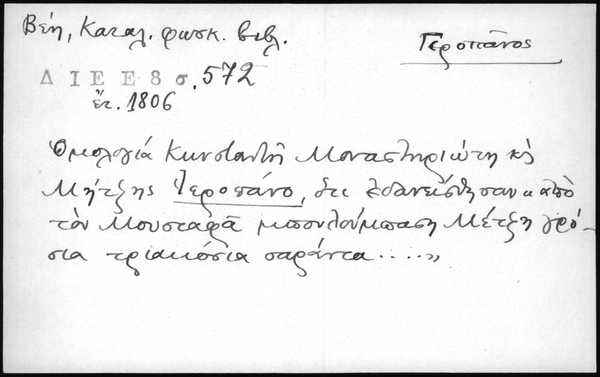 Βέη, Καταλ. φωσκ. βιβλ.
Γεροπάνος
Δ Ι Ε Ε 8 σ. 572
ἔτ. 1806
Ὁμολογία Κωνσταντῆ Μοναστηριώτη κὶ
Μήτζης Γεροπάνο, ὅτι ἐδανείσθησαν «ἀπὸ
τὸν Μουσταφᾶ μπουλούμπαση Μέτζη γρό-
σια τριακόσια σαράντα....»